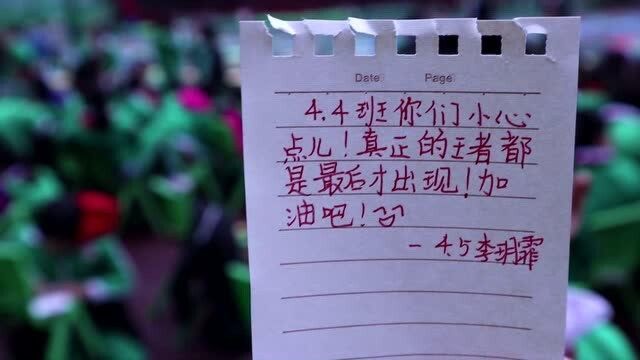 Date Page
4.4班你们小心
点儿！真正的王者都
是最后才出现！加
油吧！
-4.5李玥霏